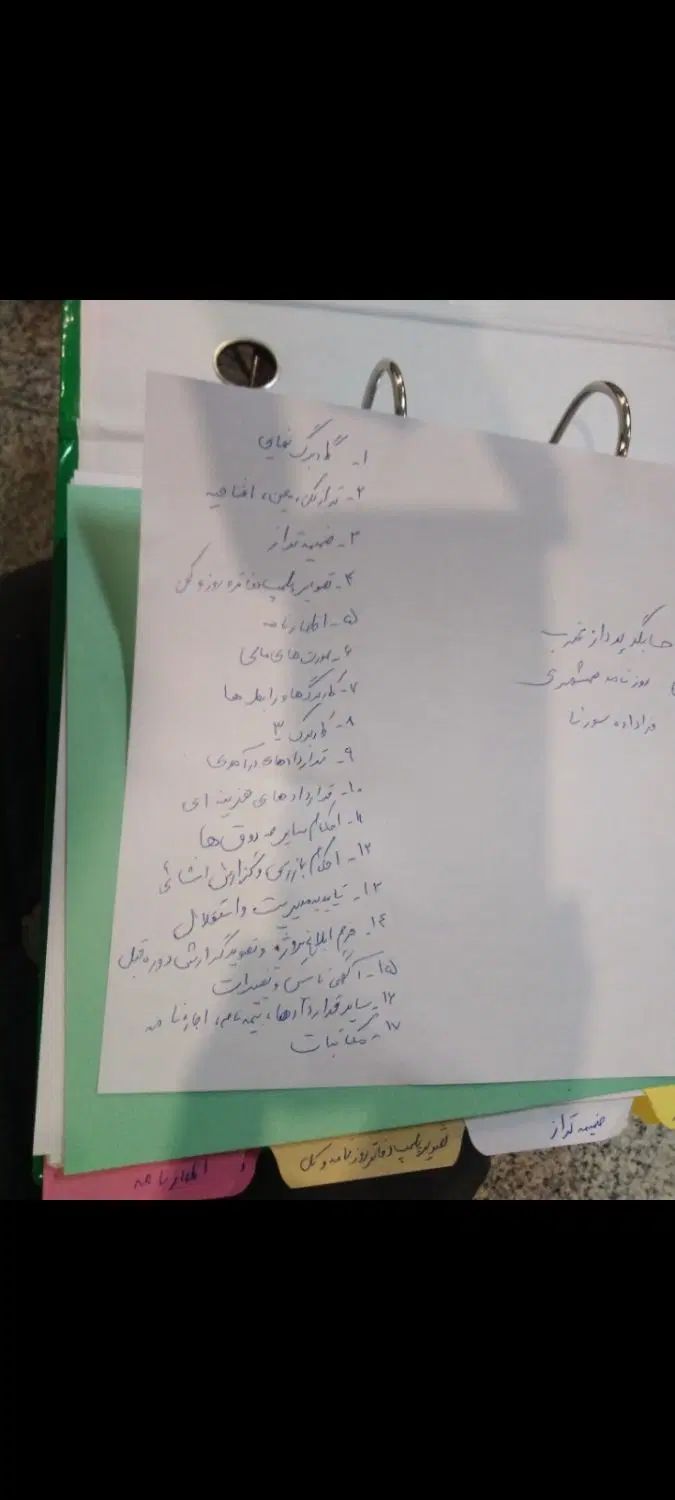 ۱- کاربرگ نمایی
۲- تراز کل، معین، افتتاحیه
۳- ضمیمه تراز
۴- تصویر پلمپ دفاتر روز و کل
۵- اظهارنامه
۶- صورت های مالی
۷- کاربرگها و رابط ها
۸- کاربرگ ۳
۹- قراردادهای درآمدی
۱۰- قراردادهای هزینه ای
۱۱- احکام سایر صندوق ها
۱۲- احکام بازرسی و گزارش انشائی
۱۳- تاییدیه مدیریت و استقلال
۱۴- فرم ابلاغ پروژه و تصویر گزارش دوره قبل
۱۵- آگهی تاسیس و تغییرات
۱۶- سایر قراردادها، بیمه نامه، اجاره نامه
۱۷- مکاتبات
پرداز غرب
روزنامه همشهری
سورنا
ضمیمه تراز
تصویر پلمپ دفاتر روزنامه و کل
اظهارنامه